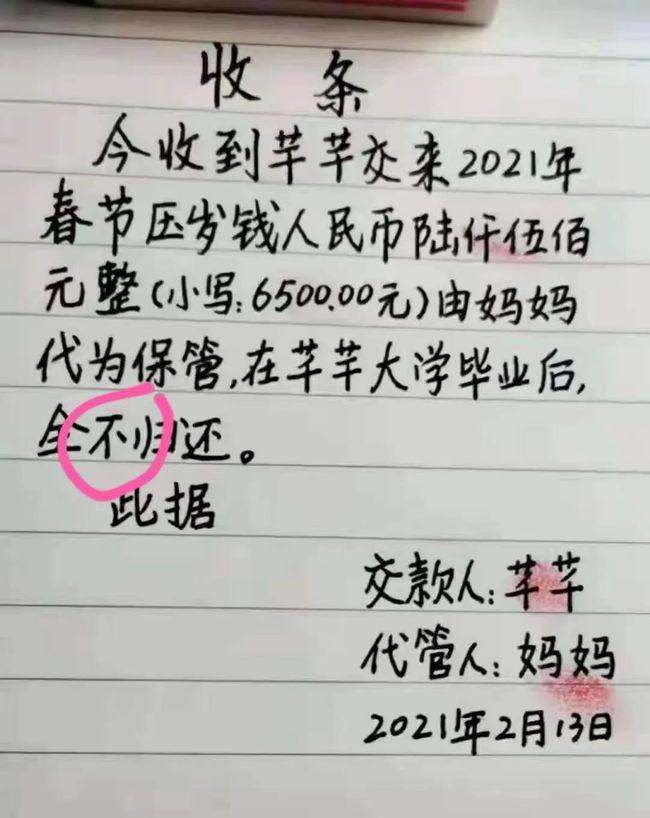 收 条
今收到芊芊交来2021年
春节压岁钱人民币陆仟伍佰
元整(小写:6500.00元)由妈妈
代为保管,在芊芊大学毕业后,
全不归还。
此据
交款人:芊芊
代管人:妈妈
2021年2月13日